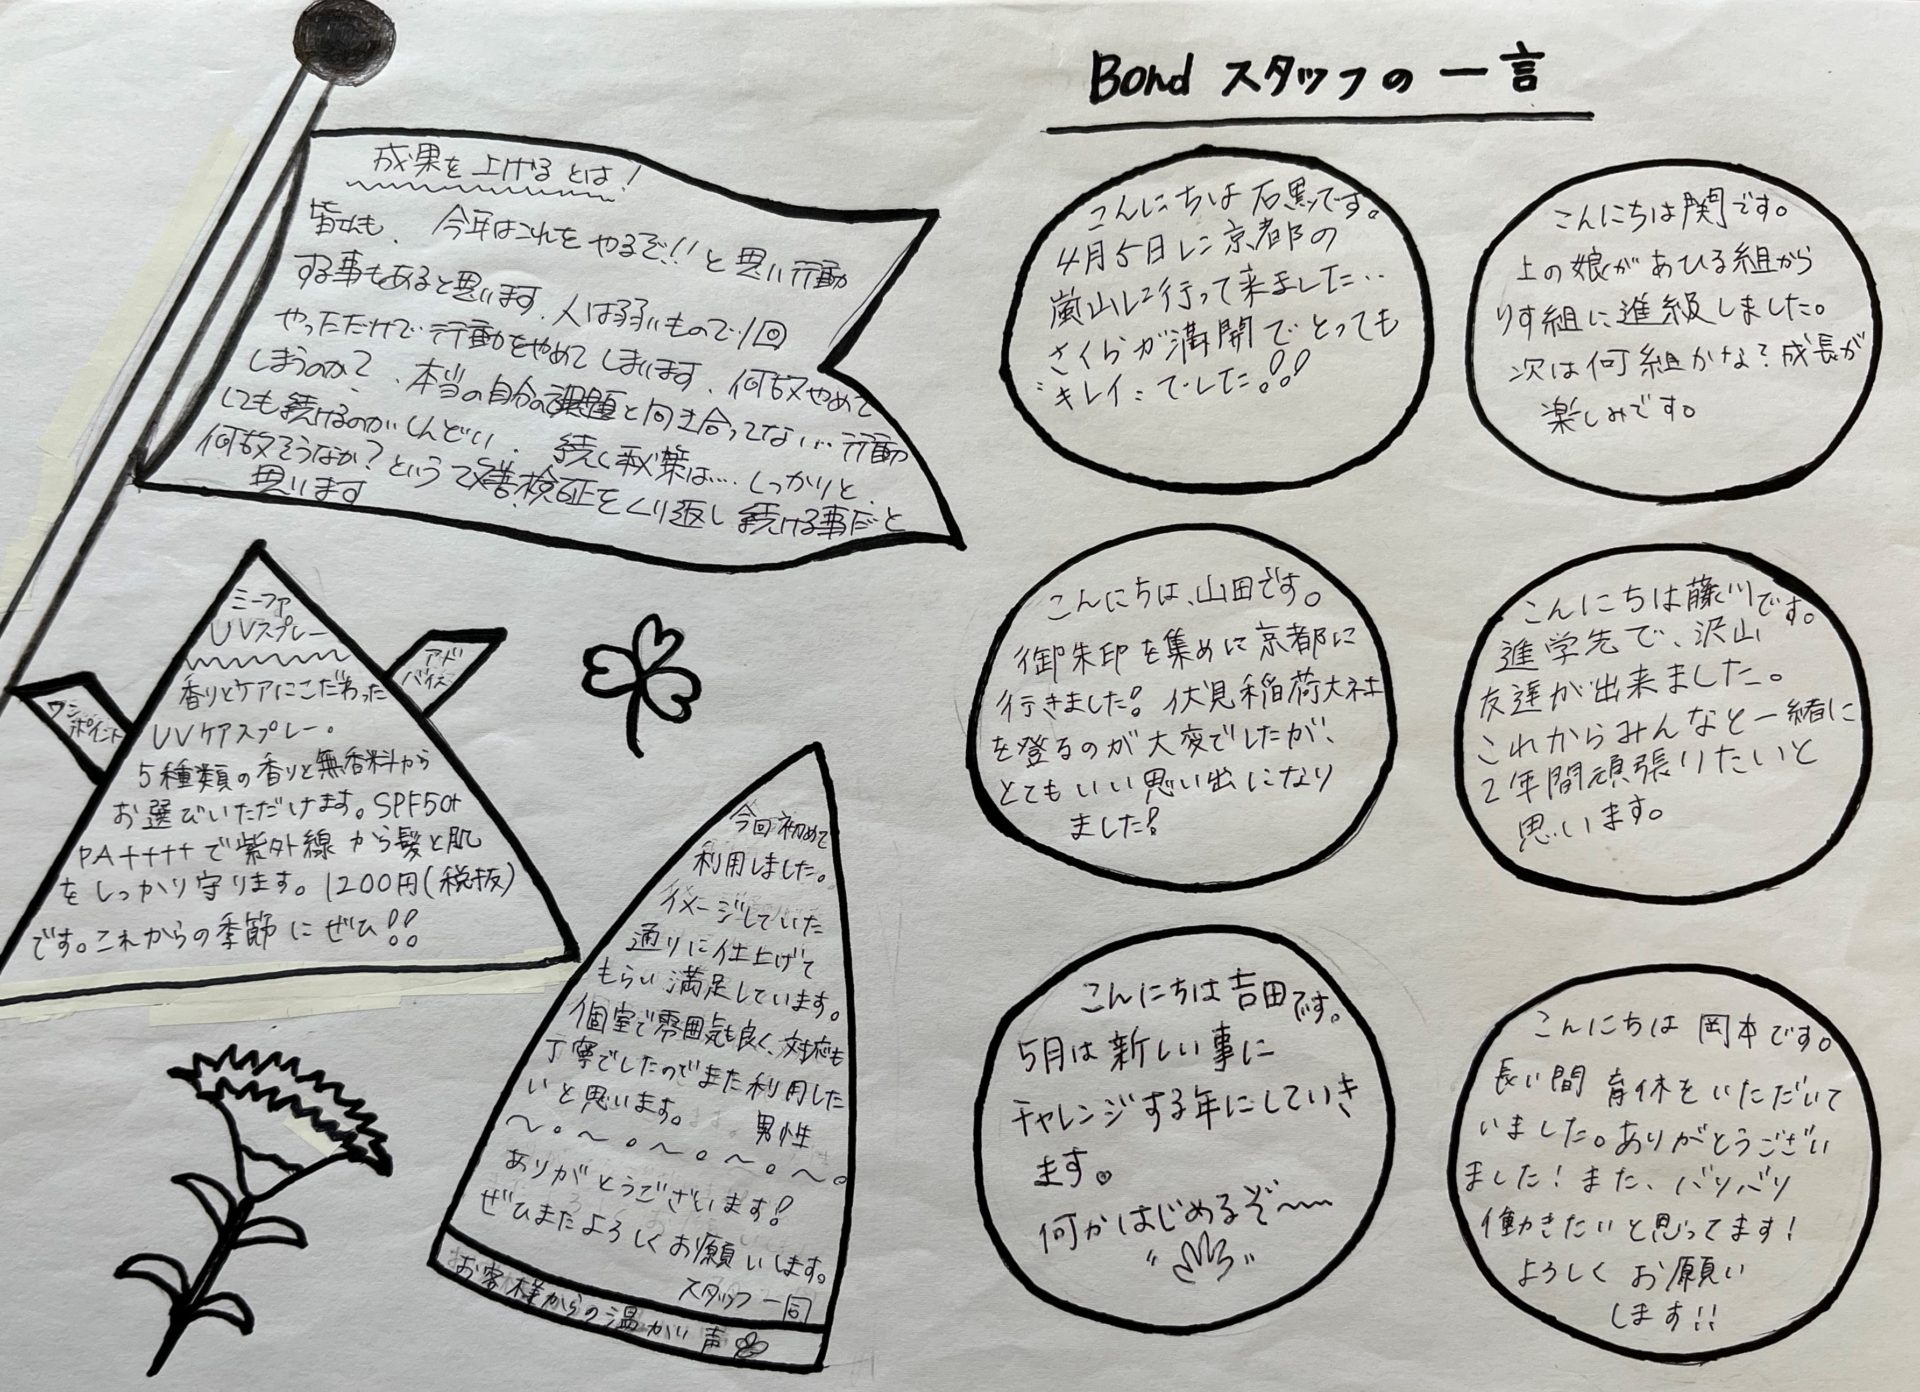 成果を上げるとは!
皆さんも、今年はこれをやるぞ!!と思い行動
する事もあると思います、人は弱いもので1回
やっただけで行動をやめてしまいます、何故やめて
しまうのか?、本当の自分の課題と向き合ってない…行動
しても続けるのがしんどい、続く秘策は…しっかりと、
何故そうなか?という改善検証をくり返し続ける事だと
思います
ミーファ
UVスプレー
香りとケアにこだわった
UVケアスプレー。
5種類の香りと無香料から
お選びいただけます。SPF50+
PA++++で紫外線から髪と肌
をしっかり守ります。1200円(税抜)
です。これからの季節にぜひ!!
ワン
ポイント
アド
バイス
今回初めて
利用しました。
イメージしていた
通りに仕上げて
もらい満足しています。
個室で雰囲気も良く、対応も
丁寧でしたのでまた利用した
いと思います。 男性
〜。〜。〜。〜。〜。
ありがとうございます!
ぜひまたよろしくお願いします。
スタッフ一同
お客様からの温かい声
Bond スタッフの一言
こんにちは石黒です。
4月5日に京都の
嵐山に行って来ました…
さくらが満開でとっても
キレイでした!!
こんにちは関です。
上の娘があひる組から
りす組に進級しました。
次は何組かな?成長が
楽しみです。
こんにちは、山田です。
御朱印を集めに京都に
行きました!伏見稲荷大社
を登るのが大変でしたが、
とてもいい思い出になり
ました!
こんにちは藤川です。
進学先で、沢山
友達が出来ました。
これからみんなと一緒に
2年間頑張りたいと
思います。
こんにちは吉田です。
5月は新しい事に
チャレンジする年にしていき
ます。
何かはじめるぞ〜
こんにちは岡本です。
長い間育休をいただいて
いました。ありがとうござい
ました!また、バリバリ
働きたいと思ってます!
よろしくお願い
します!!